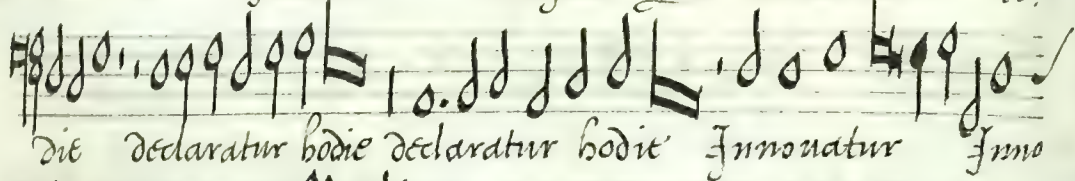 die declaratur hodie declaratur hodie Innouatur Inno